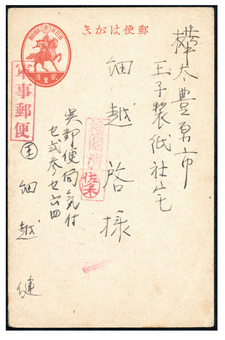 郵便はがき
樺太豊原市
王子製紙社宅
細越 啓様
軍事郵便
検閲済
佐木
呉郵便局気付
セ弐参セ六四
細越 健